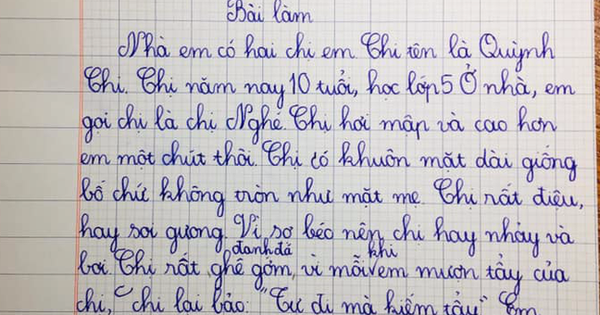 Bài làm
Nhà em có hai chị em. Chị tên là Quỳnh
Chi. Chị năm nay 10 tuổi, học lớp 5 Ở nhà, em
gọi chị là chị Nghé. Chị hơi mập và cao hơn
em một chút thôi. Chị có khuôn mặt dài giống
bố chứ không tròn như mặt mẹ. Chị rất điệu,
hay soi gương. Vì sợ béo nên chị hay nhảy và
bơi. Chị rất ghê gớm, đanh đá vì mỗi khi em mượn tẩy của
chị, chị lại bảo: "Tự đi mà kiếm tẩy". Em